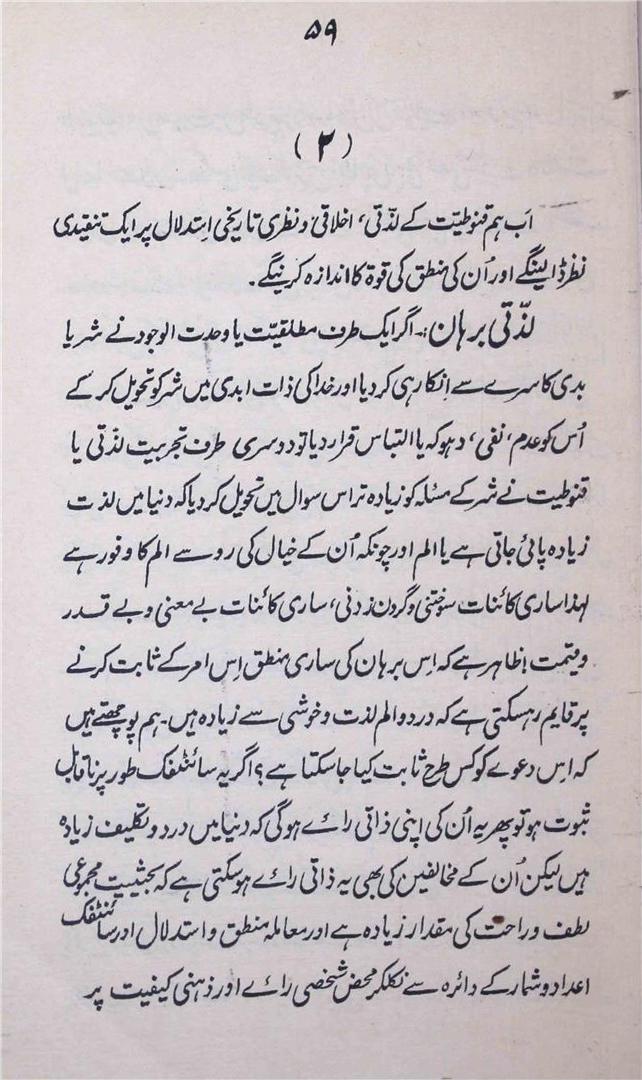 ۵۹
(۲)
اَب ہم قنوطیّت کے لذّتی، اخلاقی و نظری تاریخی اِستدلال پر ایک تنقیدی
نظر ڈالینگے اور اُن کی منطق کی قوۃ کا اندازہ کرینگے۔
لذّتی برہان :۔ اگر ایک طرف مطلقیّت یا وحدت الوجود نے شر یا
بدی کا سرے سے اِنکار ہی کر دیا اور خدا کی ذات ابدی میں شر کو تحویل کر کے
اُس کو عدم، نفی، دہوکہ یا التباس قرار دیا تو دوسری طرف تجربیت لذّتی یا
قنوطیت نے شر کے مسٔلہ کو زیادہ تر اس سوال میں تحویل کر دیا کہ دنیا میں لذت
زیادہ پائی جاتی ہے یا الم اور چونکہ اُن کے خیال کی رو سے الم کا وفور ہے
لہذا ساری کائنات سوختنی و گردن زدنی، ساری کائنات بے معنی و بے قدر
و قیمت! ظاہر ہے کہ اِس برہان کی ساری منطق اِس امر کے ثابت کرنے
پر قایم رہ سکتی ہے کہ درد و الم لذت و خوشی سے زیادہ ہیں۔ ہم پوچھتے ہیں
کہ اِس دعوے کو کس طرح ثابت کیا جا سکتا ہے؟ اگر یہ سائنٹفک طور پر ناقابل
ثبوت ہو تو پھر یہ اُن کی اپنی ذاتی رائے ہوگی کہ دنیا میں درد و تکلیف زیادہ
ہیں لیکن اُن کے مخالفین کی بھی یہ ذاتی رائے ہو سکتی ہے کہ بحیثیت مجموعی
لطف و راحت کی مقدار زیادہ ہے اور معاملہ منطق و استدلال اور سائنٹفک
اعداد و شمار کے دائرہ سے نکلکر محض شخصی رائے اور ذہنی کیفیت پر